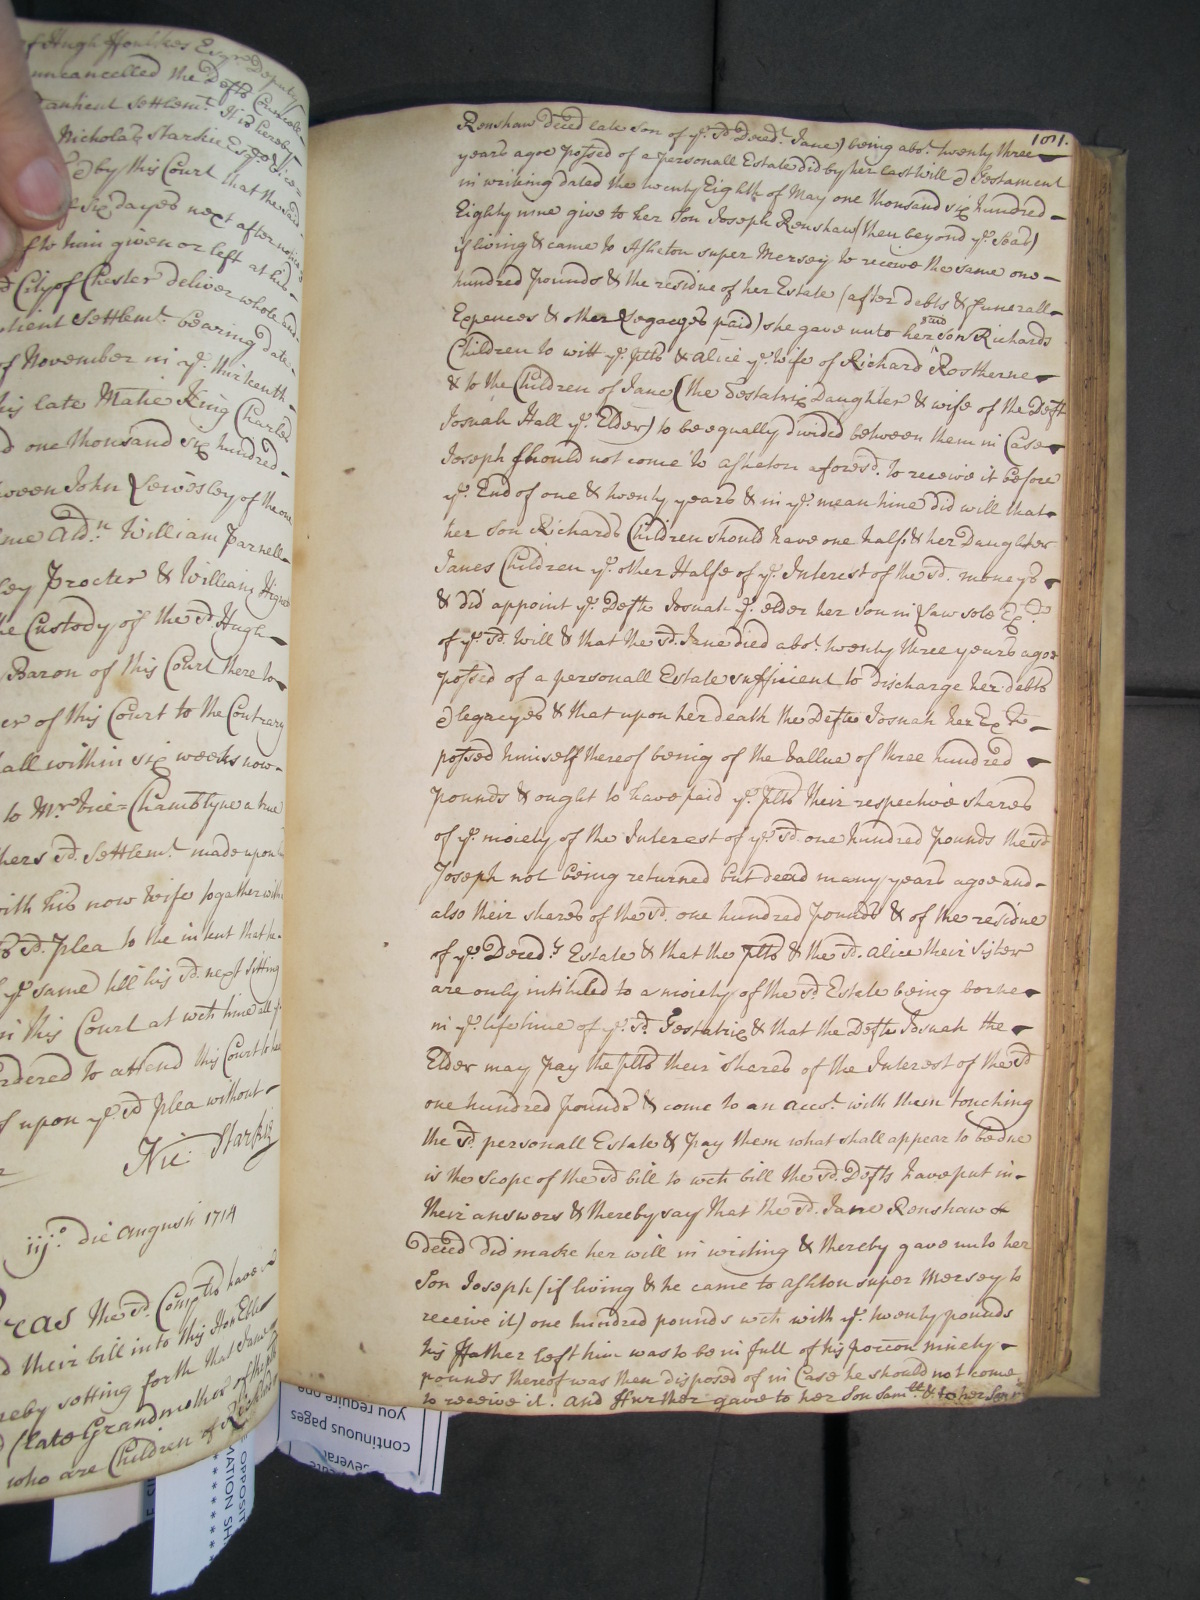 of Hugh Ffoulkes Esqr. Deputy
uncancelled the Defts Counsell
antient Settlemt. It is hereby
Nicholas Starkie Esqr.
by this Court that the said
six dayes next after notice
to him given or left at his
City of Chester deliver whole and
antient Settlemt. bearing date
of November in ye. thirteenth
his late Matie King Charles
one thousand six hundred
between John Lewesley of the one
Aldn. William Parnell
Procter & William Higne
the Custody of the sd Hugh
Baron of this Court there to
er of this Court to the Contrary
all within six weeks now
to Mr. Vice=Chamblyne a true
hers sd. Settlemt. made upon
with his now wife together with
sd. plea to the intent that he
ye same till his sd. next sitting
in this Court at wch time all
Ordered to attend this Court to hear
upon ye. sd plea without
Nic: Starkie
iij.o die Augusti 1714
reas the sd. Complts have
their bill into this Honble
reby setting forth that Jane
(late Grandmother of the plts
who are Children of Richard
101.
Renshaw deced late son of ye. sd Deced.t Jane) being abot. twenty three
years agoe possed of a personall Estate did by her last will & Testament
in writing dated the twenty Eighth of May one thousand six hundred
Eighty nine give to her Son Joseph Renshaw (then beyond ye. Seas)
if living & came to Asheton super Mersey to receive the same one
hundred pounds & the residue of her Estate (after debts & funerall
Expences & other Legacyes paid) she gave unto her said son Richards
Children to witt ye. pltts & Alice ye. wife of Richard Rostherne
& to the Children of Jane (the Testatrix Daughter & wife of the Deft
Josuah Hall ye. Elder) to be equally divided between them in Case
Joseph should not come to Asheton aforesd. to receive it before
ye. End of one & twenty years & in ye. mean time did will that
her Son Richards Children should have one halfe & her Daughter
Janes Children ye. other Halfe of ye. Interest of the sd. moneys
& did appoint ye. Defte Josuah ye. elder her Son in Law sole Exr.
of ye. sd. will & that the sd. Jane died abot. twenty three years agoe
possed of a personall Estate sufficient to discharge her debts
& legacyes & that upon her death the Defte Josuah her Exr
possed himself thereof being of the vallue of three hundred
pounds & ought to have paid ye. pltts their respective shares
of ye. moiety of the Interest of ye. sd. one hundred pounds the sd
Joseph not being returned but dead many years agoe and
also their shares of the sd. one hundred pounds & of the residue
of ye. Deced.ts Estate & that the pltts & the sd. Alice their sister
are only intituled to a moiety of the sd Estate being borne
in ye. lifetime of ye. sd. Testatrix & that the Defte Josuah the
Elder may pay the pltts their shares of the Interest of the sd
one hundred pounds & come to an acct. with them touching
the sd. personall Estate & pay them what shall appear to be due
is the scope of the sd bill to wch bill the sd. Defts have put in
their answers & thereby say that the sd. Jane Renshaw
deced did make her will in writing & thereby gave unto her
Son Joseph (if living & he came to Ashton super Mersey to
receive it) one hundred pounds wch with ye. twenty pounds
his ffather left him was to be in full of his porcon ninety
pounds thereof was then disposed of in Case he should not come
to receive it. And ffurther gave to her Son Samll. & to her Son
continuous pages
you require